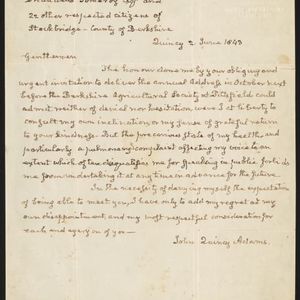 Thaddeus Pomeroy Esqr and
22 other respected citizens of
Stockbridge - County of Berkshire
Quincy 2 June 1843
Gentlemen
The honour done me by your obliging and
urgent invitation to deliver the annual Address in October next
before the Berkshire Agricultural Society at Pittsfield could
admit neither of denial nor hesitation were I at liberty to
consult my own inclination or my sense of grateful return
to your kindness. But the precarious state of my health and
particularly a pulmonary complaint affecting my voice to an
extent which often disqualifies me for speaking in public forbids
me from undertaking it at any time in advance for the future.
In the necessity of denying myself the expectation
of being able to meet you, I have only to add my regret at my
own disappointment, and my most respectful consideration for
each and every one of you —
John Quincy Adams.